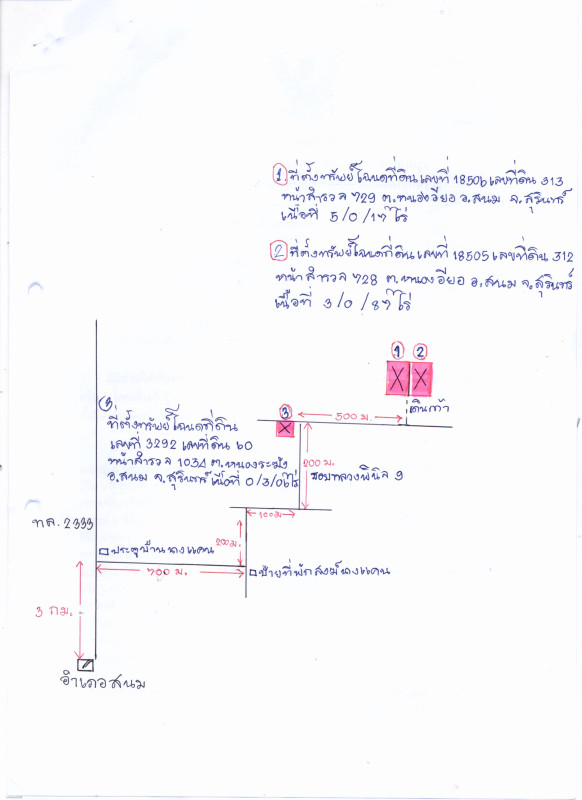 ① ที่ตั้งทรัพย์โฉนดที่ดินเลขที่ 18506 เลขที่ดิน 313
หน้าสำรวจ 729 ต.หนองอียอ อ.สนม จ.สุรินทร์
เนื้อที่ 5/0/17 ไร่
② ที่ตั้งทรัพย์โฉนดที่ดินเลขที่ 18505 เลขที่ดิน 312
หน้าสำรวจ 728 ต.หนองอียอ อ.สนม จ.สุรินทร์
เนื้อที่ 3/0/87 ไร่
① ②
เดินเท้า
③
500 ม.
③
ที่ตั้งทรัพย์โฉนดที่ดิน
เลขที่ 3292 เลขที่ดิน 60
หน้าสำรวจ 1034 ต.หนองระฆัง
อ.สนม จ.สุรินทร์ เนื้อที่ 0/3/06 ไร่
200 ม.
ซอยหลวงพินิจ 9
100 ม
ทล. 2333
200 ม.
ประตูบ้านนางแคน
700 ม.
ป้ายที่พักสงฆ์นางแคน
3 กม.
อำเภอสนม